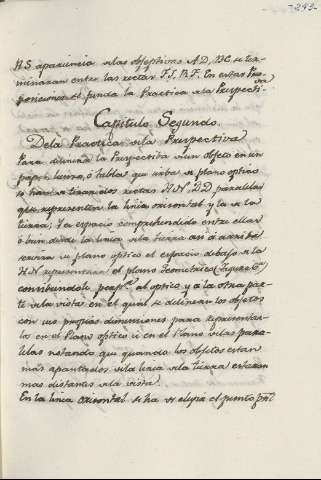 293
H.S. apariencia de las objeptivas A D, B C se ter-
minaran entre las rectas F.S, B.F. En estas Pro
posiciones se funda la Practica de la Prespecti-
Capitulo Segundo
De la Practica de la Prespectiva
Para delinear la Prespectiba de un objeto en un
papel, lienzo, ó tabla que sirba de plano optico
se han de tirar dos rectas H N, D D paralelas
que representen la linia orisontal y la de la
tierra; Y el espacio comprehendido entre ellas
ó bien desde la linia de la tierra asi á arriba
servira de plano optico el espacio debajo de la
H N representara el plano Geometrico (Figura 6ª)
al optico y á la otra par-
te de la vista en el qual se delinean los objetos
con sus propias dimensiones para representar-
la en el Plano optico ú en el Plano de las para
lelas notando que quando los objetos estan
mas apartados de la linia de la tierra estaran
mas distantes de la vista.
En la linia orisontal se ha de elegir el punto